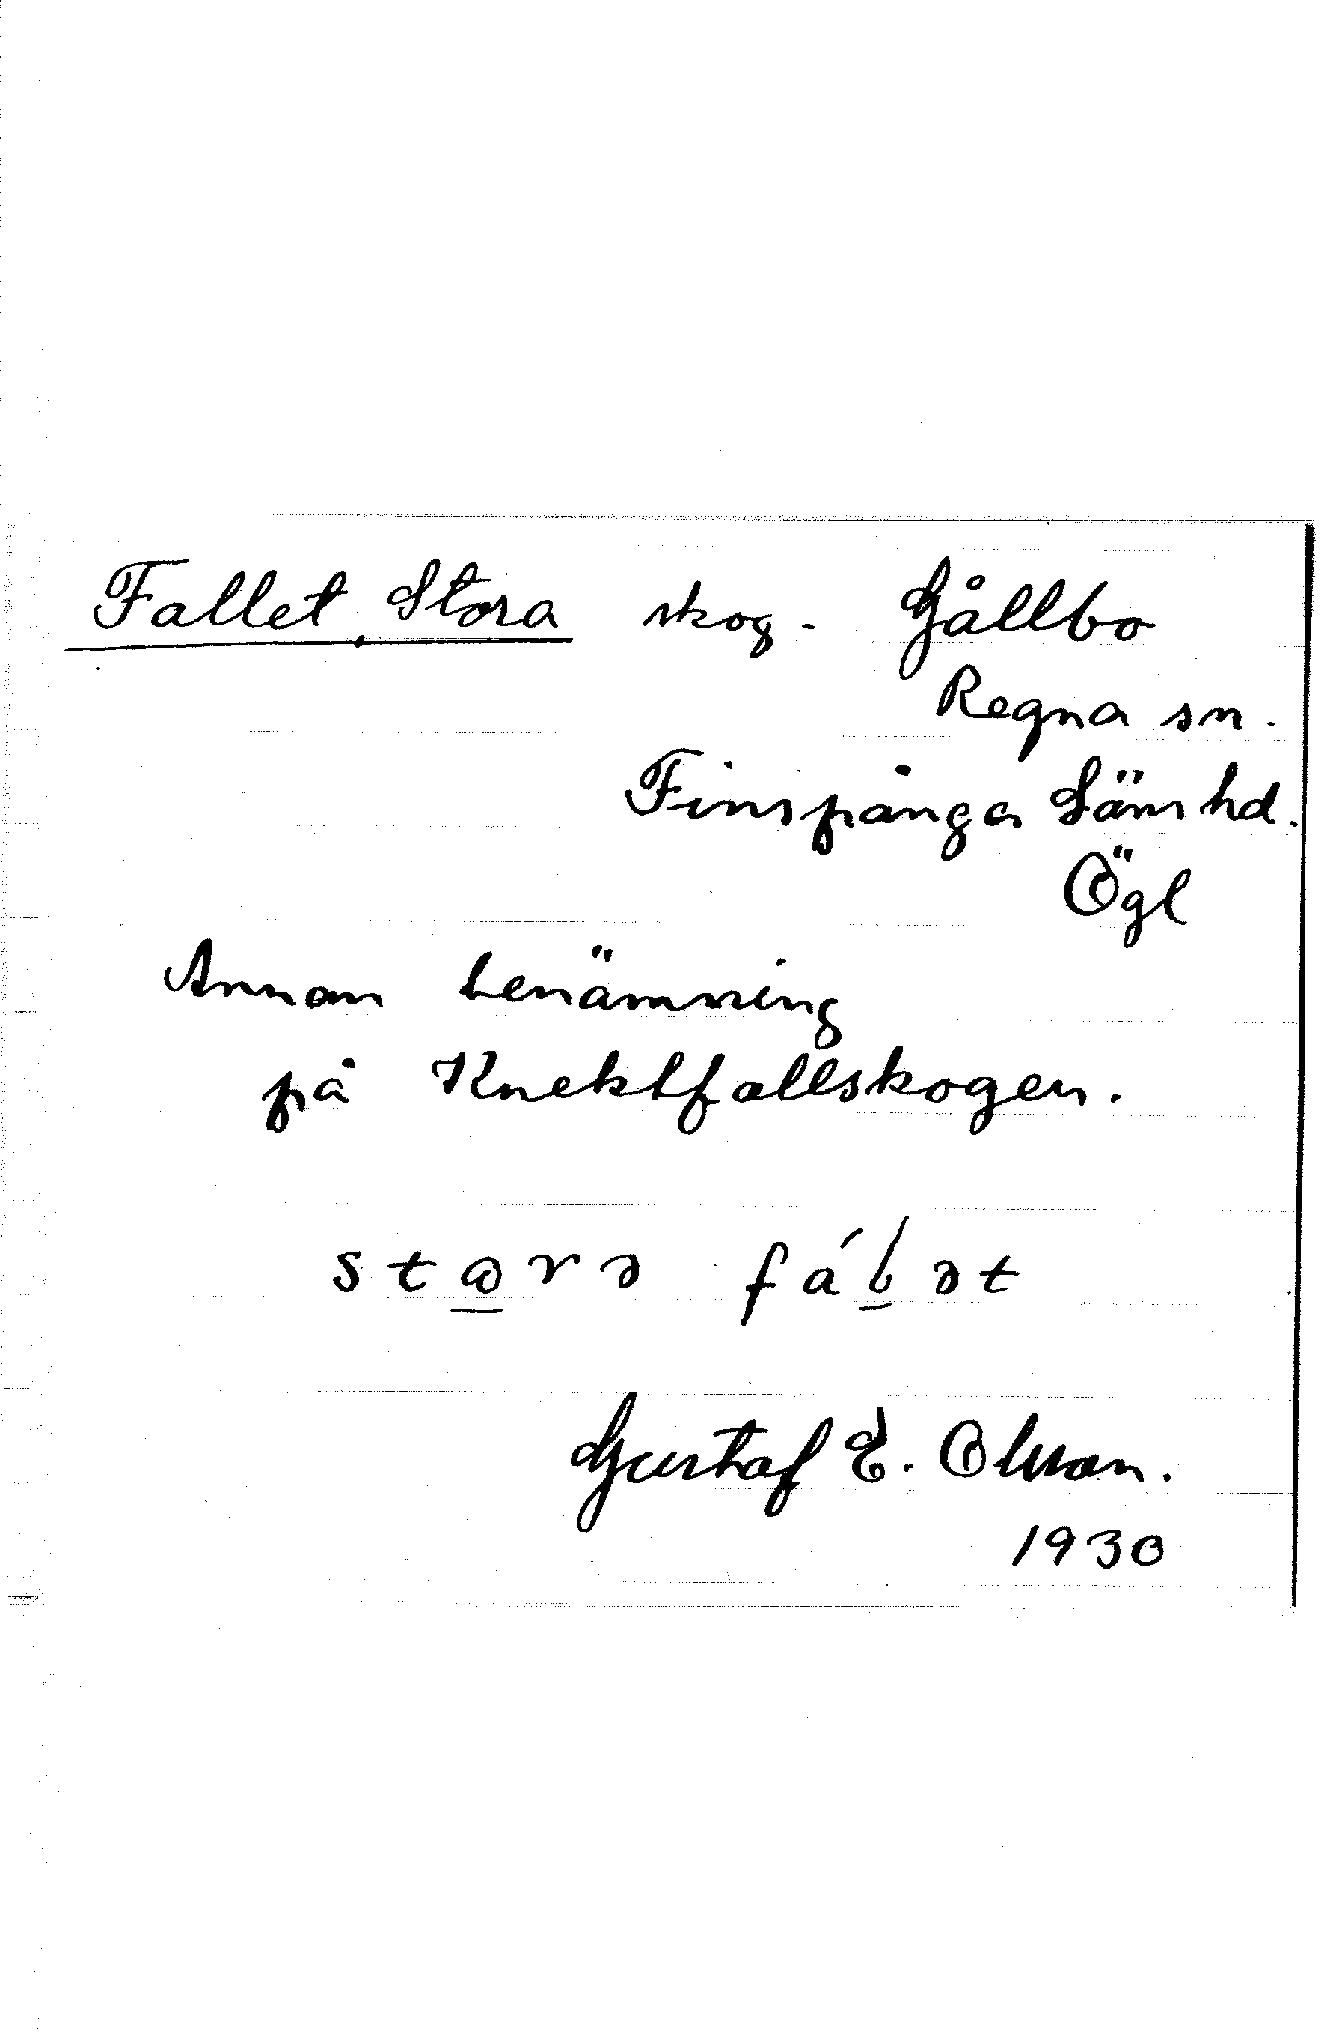 Fallet, Stora skog - Gållbo
Regna sn.
Finspånga Läns hd.
Ögl
Annan benämning
på Knektfallskogen.
Gustaf E. Olsson.
1930